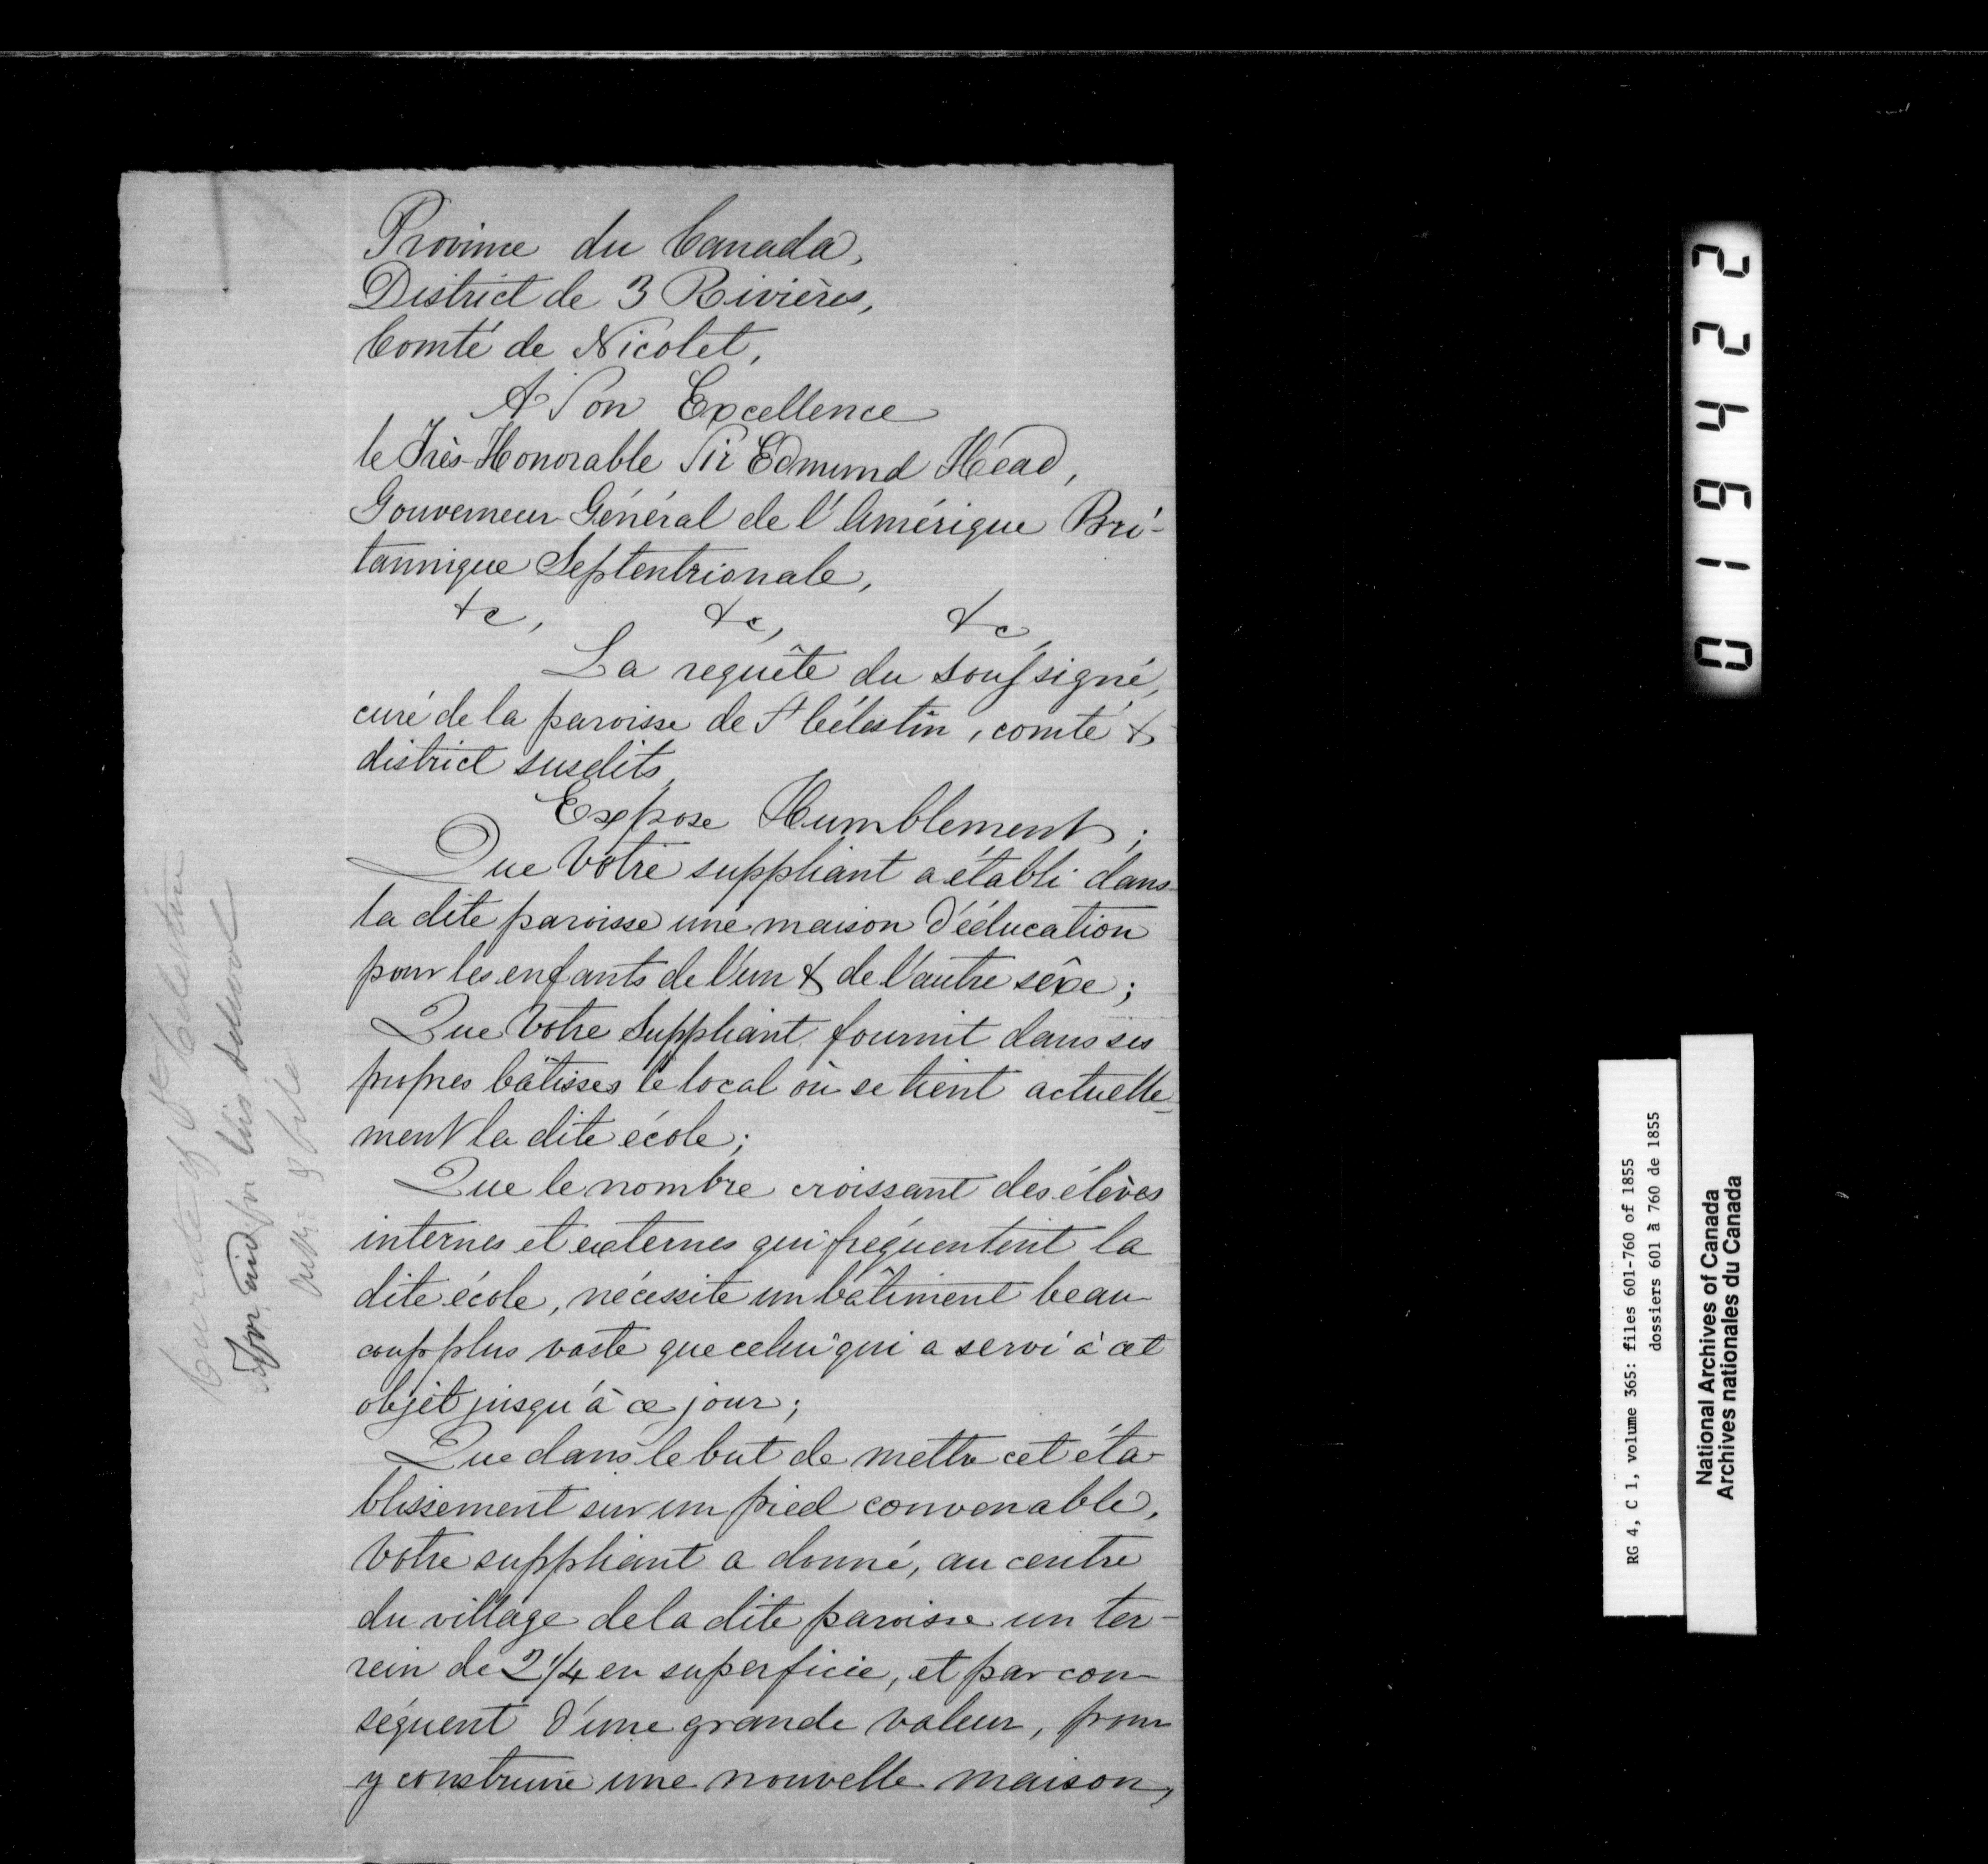 Province du Canada,
District de 3 Rivières,
Comté de Nicolet,
A Son Excellence
le Très-Honorable Sir Edmund Head,
Gouverneur-Général de l'Amérique Bri-
tannique Septentrionale,
&c, &c, &c,
La requête du soussigné,
curé de la paroisse de St Célestin, comté &
district susdits,
Expose Humblement;
Que Votre suppliant a établi dans
la dite paroisse une maison d'éducation
pour les enfants de l'un & de l'autre sèxe;
Que Votre Suppliant fournit dans ses
propres bâtisses le local où se tient actuelle-
ment la dite école;
Que le nombre croissant des élèves
internes et externes qui fréquentent la
dite école, nécessite un bâtiment beau-
coup plus vaste que celui qui a servi à cet
objet jusqu'à ce jour;
Que dans le but de mettre cet éta-
blissement sur un pied convenable,
Votre suppliant a donné, au centre
du village de la dite paroisse un ter-
rein de 2 1/4 en superficie, et par con-
séquent d'une grande valeur, pour
y construire une nouvelle maison,
Curate of St Celestin
For aid for his school
022461910
RG 4, C 1, volume 365: files 601-760 of 1855
dossiers 601 à 760 de 1855
National Archives of Canada
Archives nationales du Canada